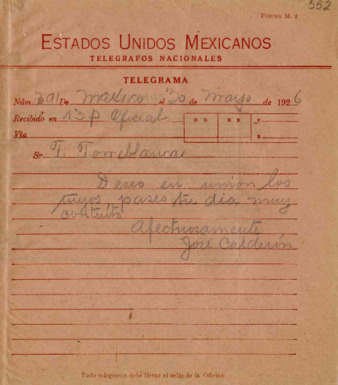 352
FORMA M. 2
ESTADOS UNIDOS MEXICANOS
TELEGRAFOS NACIONALES
TELEGRAMA
Núm. De Mexico el 30 de Mayo de 1926
Recibido en 13 P Oficial
Vía
Sr. F. Torreblanca
Deseo en unión los
tuyos, pases tu dia muy
contento
Afectuosamente
José Calderón
Todo telegrama debe llevar el sello de la Oficina